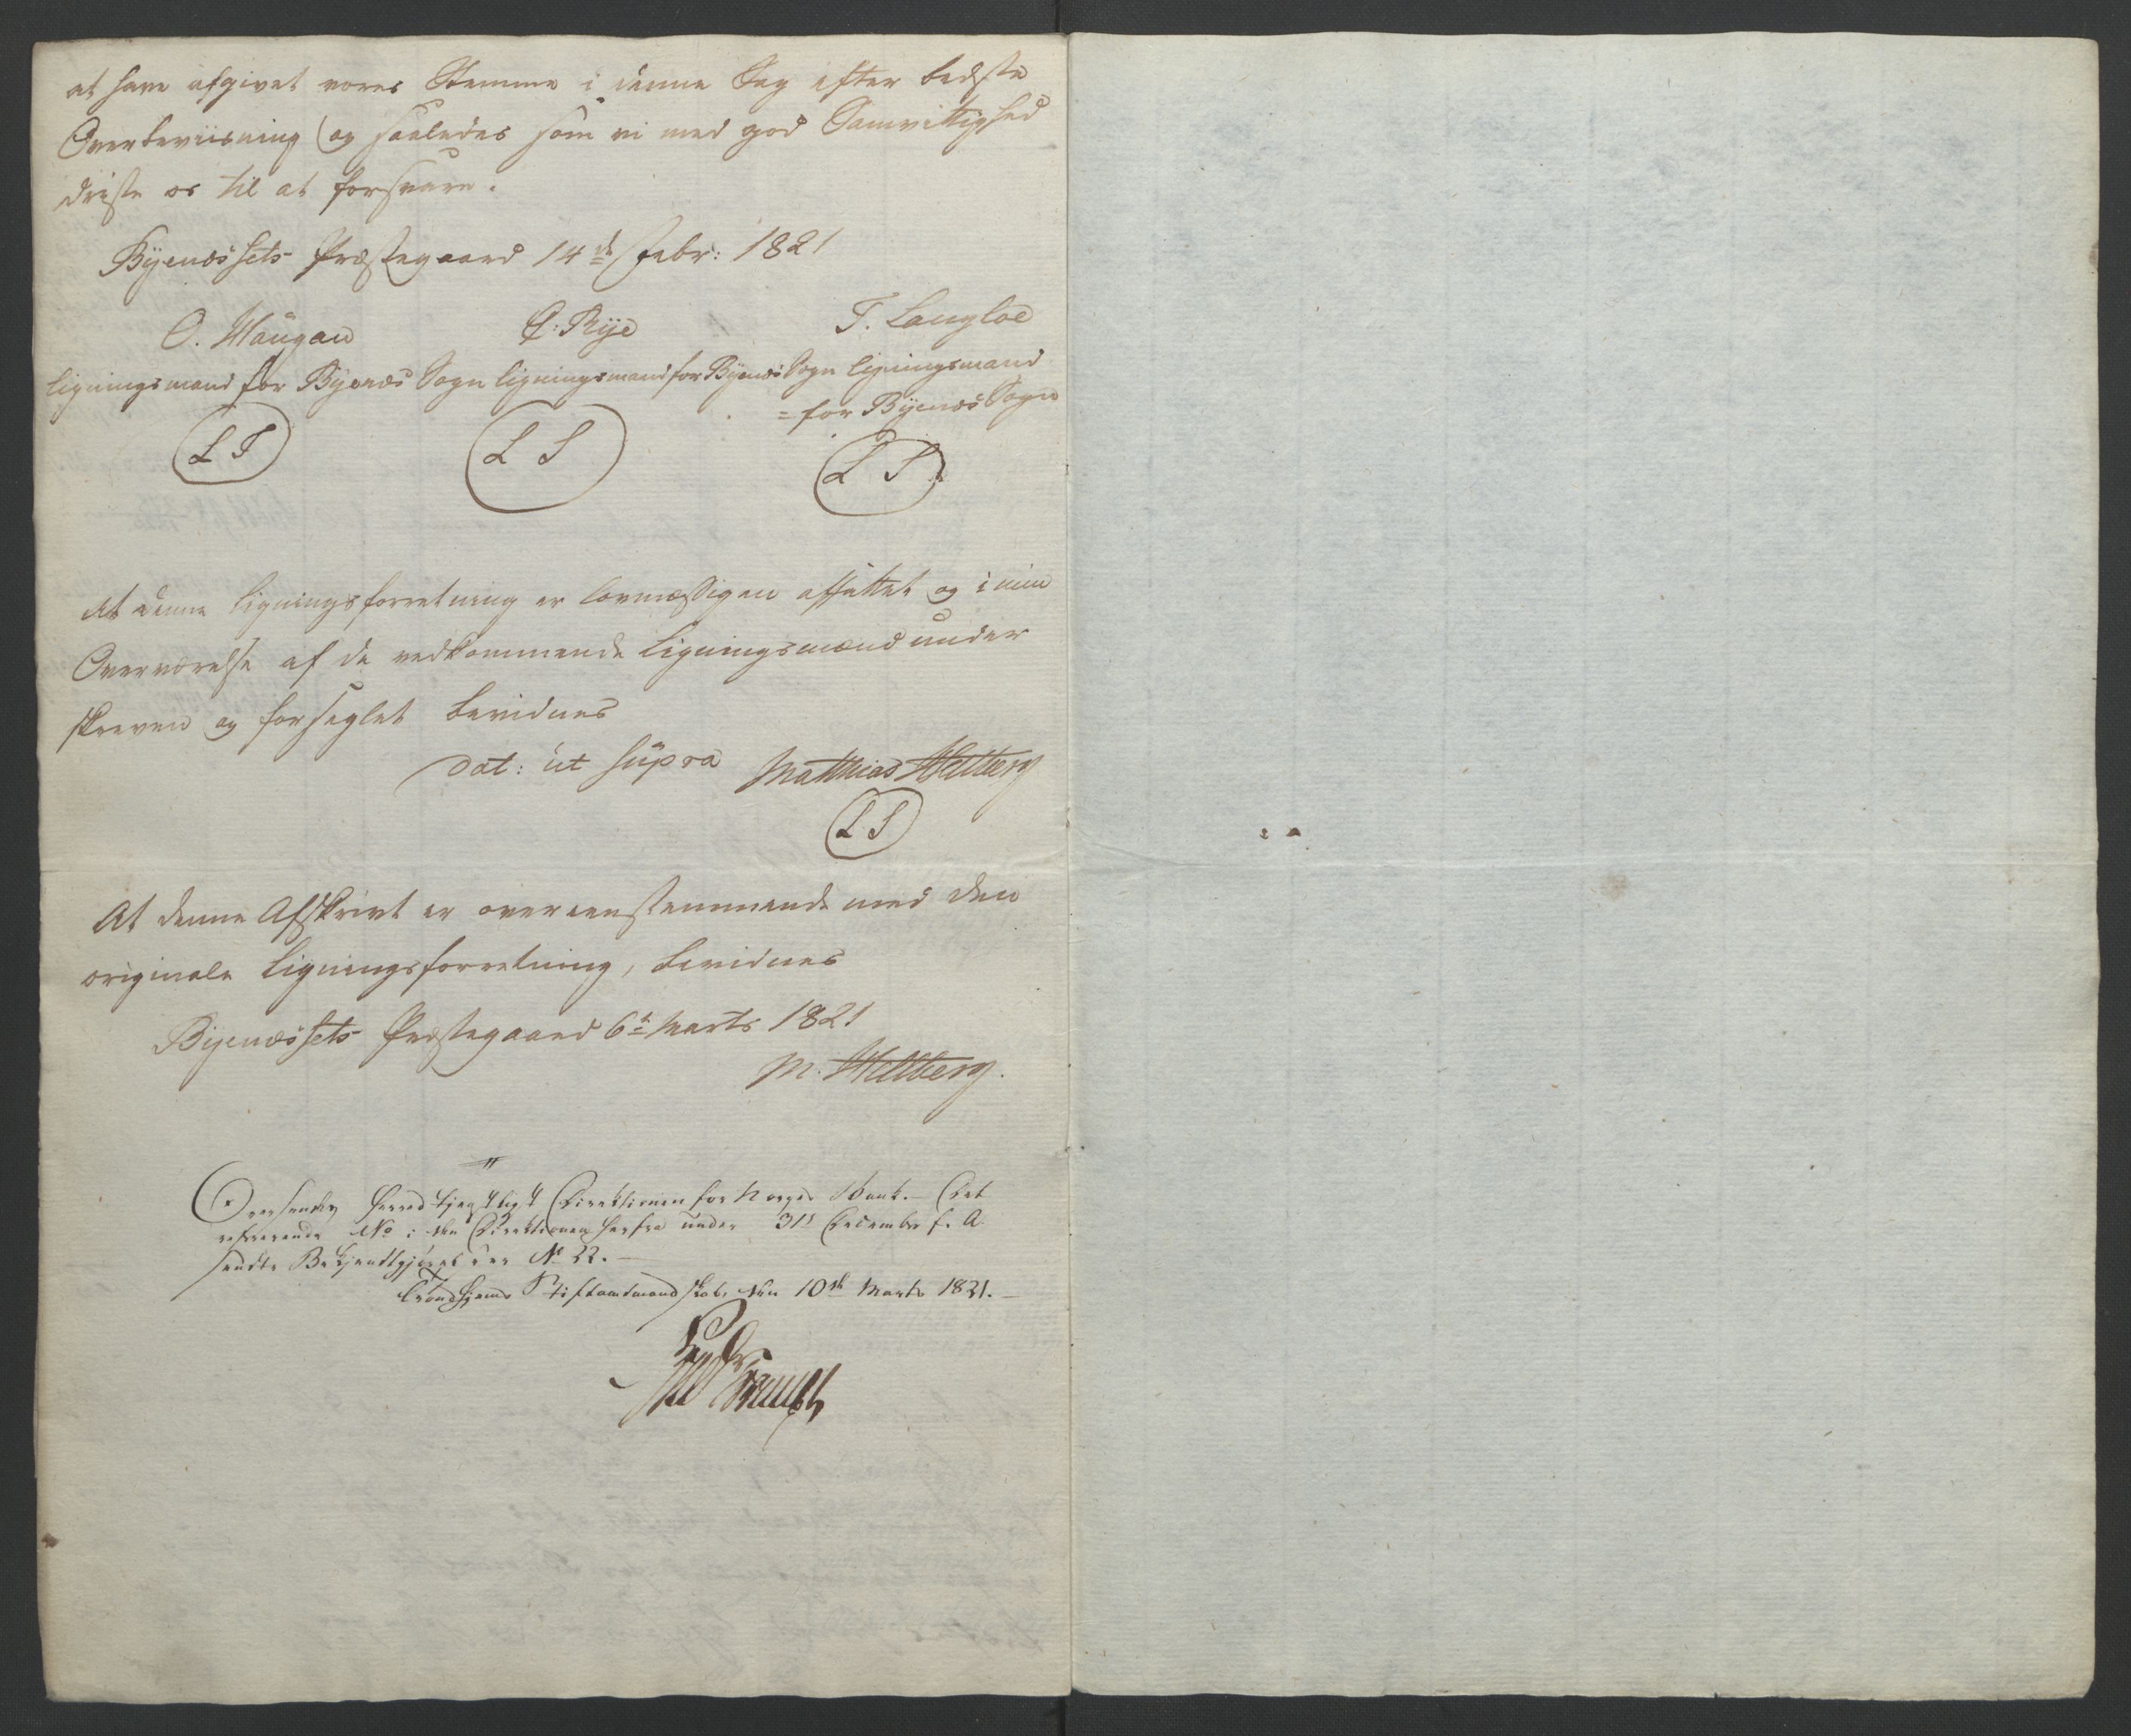 at have afgivet vores Stemme i denne Sag efter bedste
Overbeviisning og saaledes som vi med god Samvittighed
driste os til at forsvare.
Byenæssets Præstegaard 14de Febr: 1821
O. Haugan E: Rye T. Langloe
Ligningsmand for Byenæs Sogn Ligningsmand for Byenæs Sogn Ligningsmand
= for Byenæs Sogn
L S L S L S
At denne Ligningsforretning er lovmæssigen affattet og i min
Overværelse af de vedkommende Ligningsmænd under
skreven og forseglet bevidnes
dat: ut supra Matthias Hetberg
L S
At denne Afskrivt er overeensstemmende med den
originale Ligningsforretning, bevidnes
Byenæssets Præstegaard 6te Marts 1821
M. Hetberg.
Oversendes herved tjenstligst Directionen for Norges Bank. – Det
refererende No i den Directionen herfra under 31te December f. A.
sendte Bekjendtgjørelse er No 22. –
Trondhjems Stiftamtmandskab, den 10de Marts 1821. –